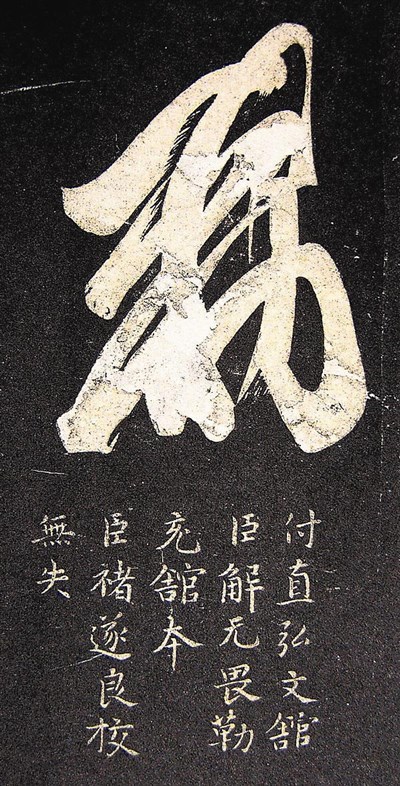 敕
付直弘文舘
臣解无畏勒
充舘本
臣褚遂良校
無失